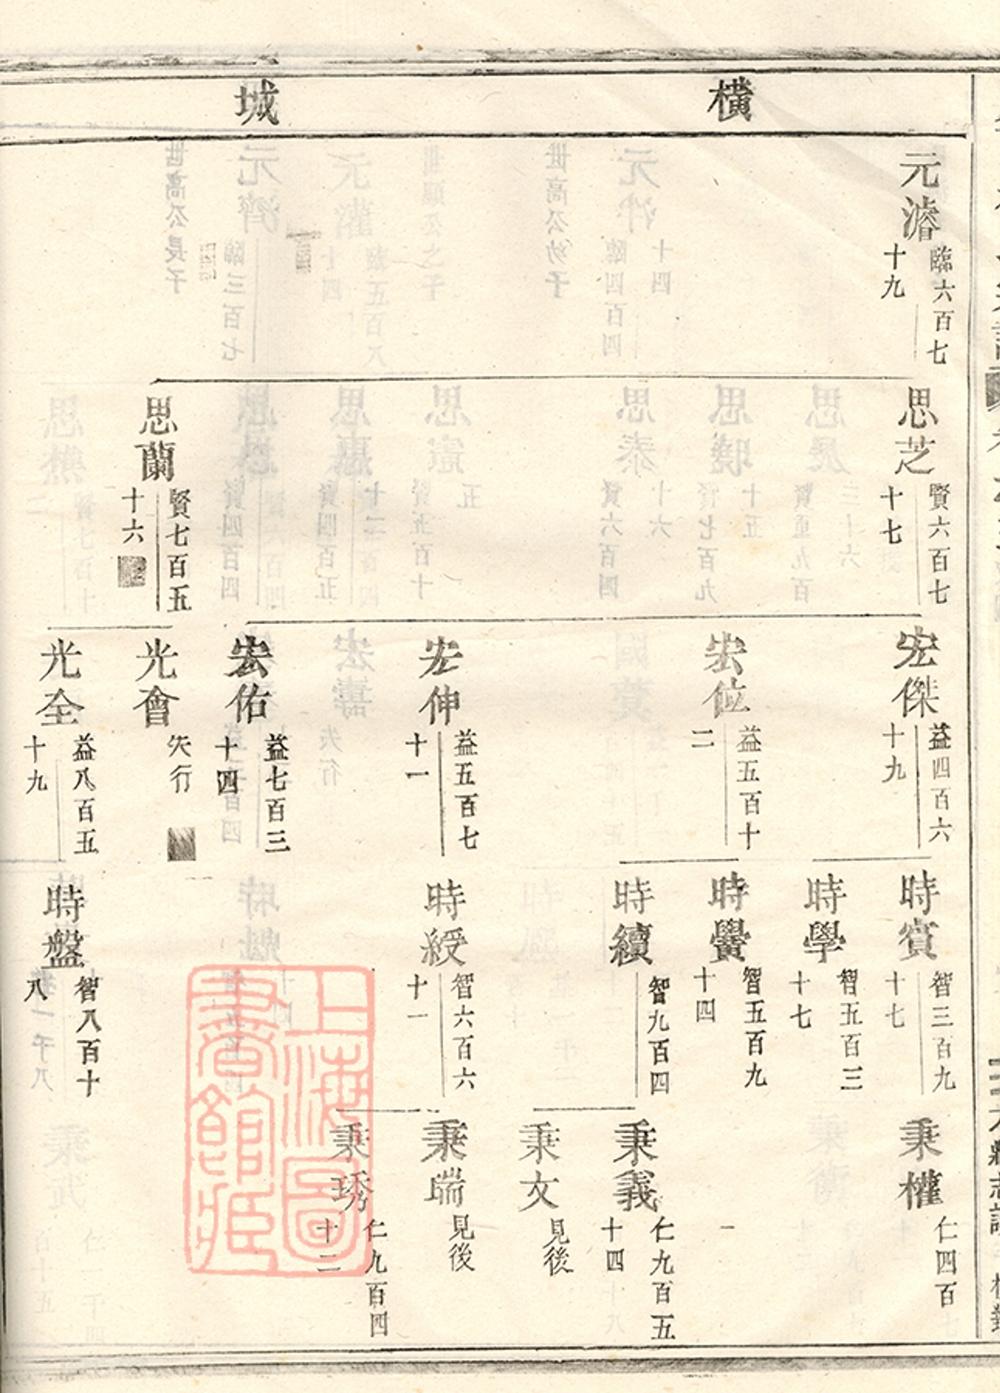 橫
城
元濬
臨六百七
十九
思芝
賢六百七
十七
思蘭
賢七百五
十六
宏傑
益四百六
十九
宏位
益五百十
二
宏伸
益五百七
十一
宏佑
益七百三
十四
光會
失行
光全
益八百五
十九
時賓
智三百九
十七
時學
智五百三
十七
時黌
智五百九
十四
時續
智九百四
時綬
智六百六
十一
時盤
智八百十
八
秉權
仁四百
秉義
仁九百五
十四
秉文
見後
秉瑞
見後
秉琇
仁九百四
十二
上海圖
書館藏